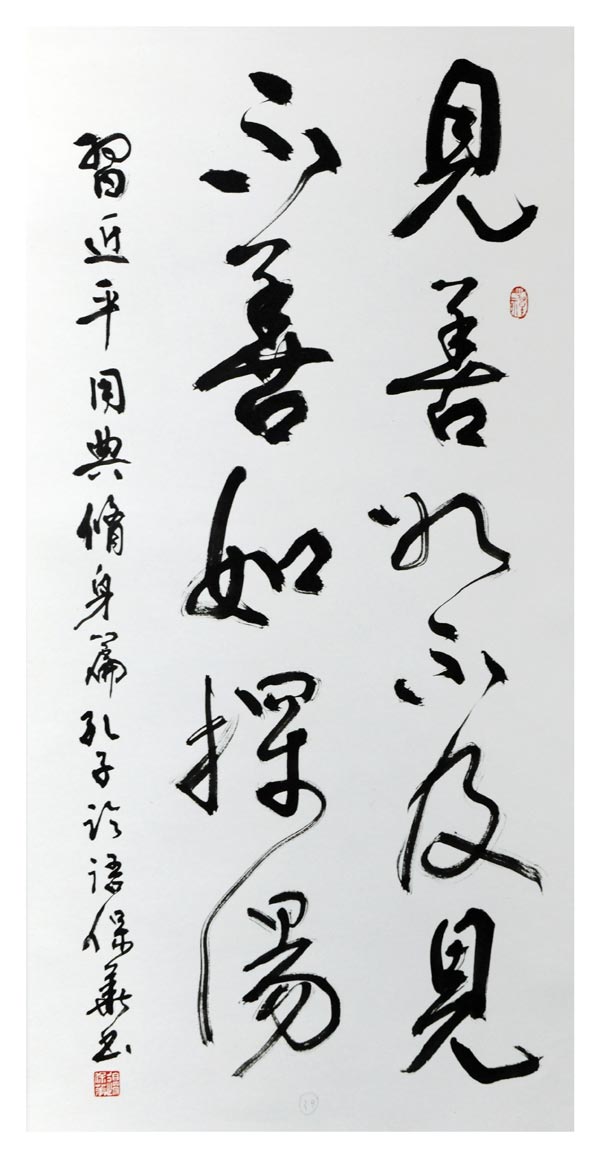 見善如不及見
不善如探湯
習近平用典脩身篇孔子論語保華书